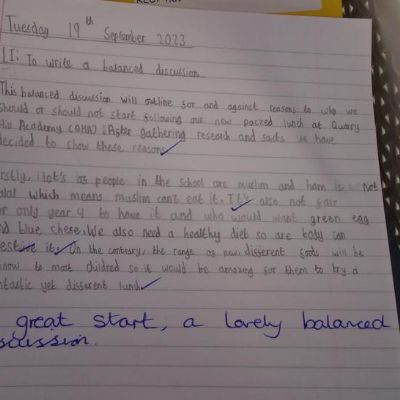 Tuesday 19th September 2023
LI: To write a balanced discussion
This balanced discussion will outline for and against reasons to why we
should or should not start following our new packed lunch at Quarry
Academy (QHA) After gathering research and facts we have
decided to show these reasons
Firstly, lots of people in the school are muslim and ham is Not
halal which means muslim cant eat it. It's also not fair
for only year 4 to have it and who would want green egg
and blue chese. We also need a healthy diet so are body can
it. On the contrary, the range of new different foods will be
to most childred so it would be amazing for them to try a
fantastic yet different lunch
great start, a lovely balanced
discussion.